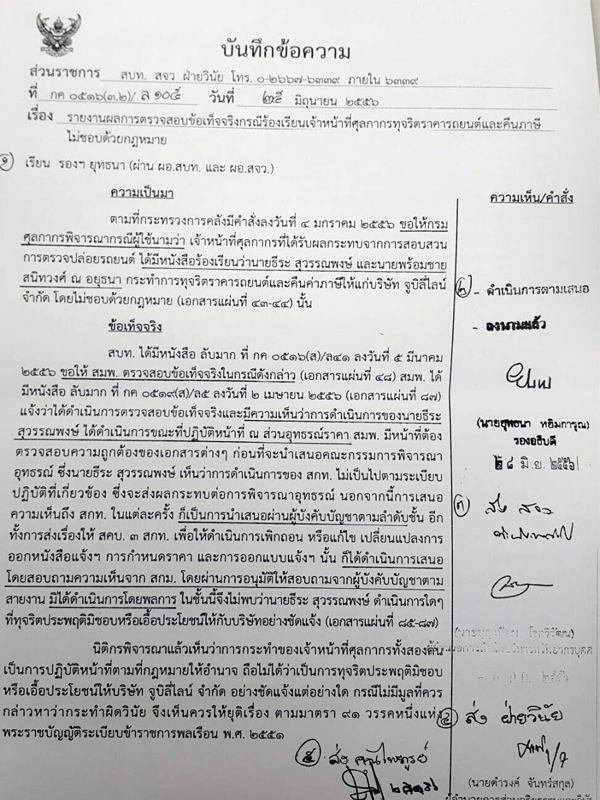 บันทึกข้อความ
ส่วนราชการ สบท. สจว ฝ่ายวินัย โทร. ๐-๒๖๖๗-๖๓๓๙ ภายใน ๖๓๓๙
ที่ กค ๐๕๑๖(๓.๒)/ ล ๑๐๕ วันที่ ๒๕ มิถุนายน ๒๕๕๖
เรื่อง รายงานผลการตรวจสอบข้อเท็จจริงกรณีร้องเรียนเจ้าหน้าที่ศุลกากรทุจริตราคารถยนต์และคืนภาษี
ไม่ชอบด้วยกฎหมาย
๑ เรียน รองฯ ยุทธนา (ผ่าน ผอ.สบท. และ ผอ.สจว.)
ความเป็นมา
ตามที่กระทรวงการคลังมีคำสั่งลงวันที่ ๔ มกราคม ๒๕๕๖ ขอให้กรม
ศุลกากรพิจารณากรณีผู้ใช้นามว่า เจ้าหน้าที่ศุลกากรที่ได้รับผลกระทบจากการสอบสวน
การตรวจปล่อยรถยนต์ ได้มีหนังสือร้องเรียนว่านายธีระ สุวรรณพงษ์ และนายพร้อมชาย
สนิทวงศ์ ณ อยุธยา กระทำการทุจริตราคารถยนต์และคืนค่าภาษีให้แก่บริษัท จูบิลี่ไลน์
จำกัด โดยไม่ชอบด้วยกฎหมาย (เอกสารแผ่นที่ ๔๓-๔๔) นั้น
ข้อเท็จจริง
สบท. ได้มีหนังสือ ลับมาก ที่ กค ๐๕๑๖(ส)/ล๔๑ ลงวันที่ ๕ มีนาคม
๒๕๕๖ ขอให้ สมพ. ตรวจสอบข้อเท็จจริงในกรณีดังกล่าว (เอกสารแผ่นที่ ๔๘) สมพ. ได้
มีหนังสือ ลับมาก ที่ กค ๐๕๑๙(ส)/ล๕ ลงวันที่ ๒ เมษายน ๒๕๕๖ (เอกสารแผ่นที่ ๘๗)
แจ้งว่าได้ดำเนินการตรวจสอบข้อเท็จจริงและมีความเห็นว่าการดำเนินการของนายธีระ
สุวรรณพงษ์ ได้ดำเนินการขณะที่ปฏิบัติหน้าที่ ณ ส่วนอุทธรณ์ราคา สมพ. มีหน้าที่ต้อง
ตรวจสอบความถูกต้องของเอกสารต่างๆ ก่อนที่จะนำเสนอคณะกรรมการพิจารณา
อุทธรณ์ ซึ่งนายธีระ สุวรรณพงษ์ เห็นว่าการดำเนินการของ สกท. ไม่เป็นไปตามระเบียบ
ปฏิบัติที่เกี่ยวข้อง ซึ่งจะส่งผลกระทบต่อการพิจารณาอุทธรณ์ นอกจากนี้การเสนอ
ความเห็นถึง สกท. ในแต่ละครั้ง ก็เป็นการนำเสนอผ่านผู้บังคับบัญชาตามลำดับชั้น อีก
ทั้งการส่งเรื่องให้ สคบ. ๓ สกท. เพื่อให้ดำเนินการเพิกถอน หรือแก้ไข เปลี่ยนแปลงการ
ออกหนังสือแจ้งฯ การกำหนดราคา และการออกแบบแจ้งฯ นั้น ก็ได้ดำเนินการเสนอ
โดยสอบถามความเห็นจาก สกม. โดยผ่านการอนุมัติให้สอบถามจากผู้บังคับบัญชาตาม
สายงาน มิได้ดำเนินการโดยพลการ ในชั้นนี้จึงไม่พบว่านายธีระ สุวรรณพงษ์ ดำเนินการใดๆ
ที่ทุจริตประพฤติมิชอบหรือเอื้อประโยชน์ให้กับบริษัทอย่างชัดแจ้ง (เอกสารแผ่นที่ ๘๕-๘๗)
นิติกรพิจารณาแล้วเห็นว่าการกระทำของเจ้าหน้าที่ศุลกากรทั้งสองคน
เป็นการปฏิบัติหน้าที่ตามที่กฎหมายให้อำนาจ ถือไม่ได้ว่าเป็นการทุจริตประพฤติมิชอบ
หรือเอื้อประโยชน์ให้บริษัท จูบิลี่ไลน์ จำกัด อย่างชัดแจ้งแต่อย่างใด กรณีไม่มีมูลที่ควร
กล่าวหาว่ากระทำผิดวินัย จึงเห็นควรให้ยุติเรื่อง ตามมาตรา ๙๑ วรรคหนึ่งแห่ง
พระราชบัญญัติระเบียบข้าราชการพลเรือน พ.ศ. ๒๕๕๑
ความเห็น/คำสั่ง
๒ - ดำเนินการตามเสนอ
- ลงนามแล้ว
(นายยุทธนา หยิมการุณ)
รองอธิบดี
๒๘ มิ.ย. ๒๕๕๖
๓ ส่ง สจว
๔ ส่ง ฝ่ายวินัย
(นายดำรงค์ จันทร์สกุล)
๕ ส่ง คุณไพฑูรย์